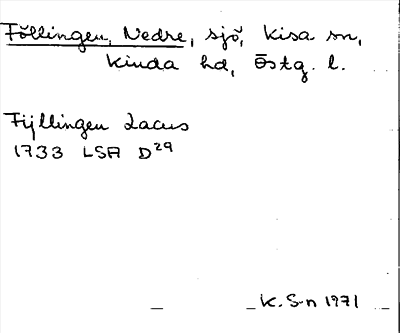 Föllingen, Nedre, sjö, Kisa sn,
Kinda hd, Östg. l.
Fyllingen Lacus
1733 LSA D29
K. S-n 1971